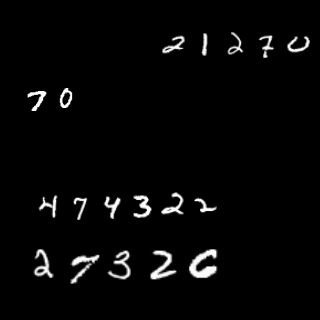 21270
70
474322
27326